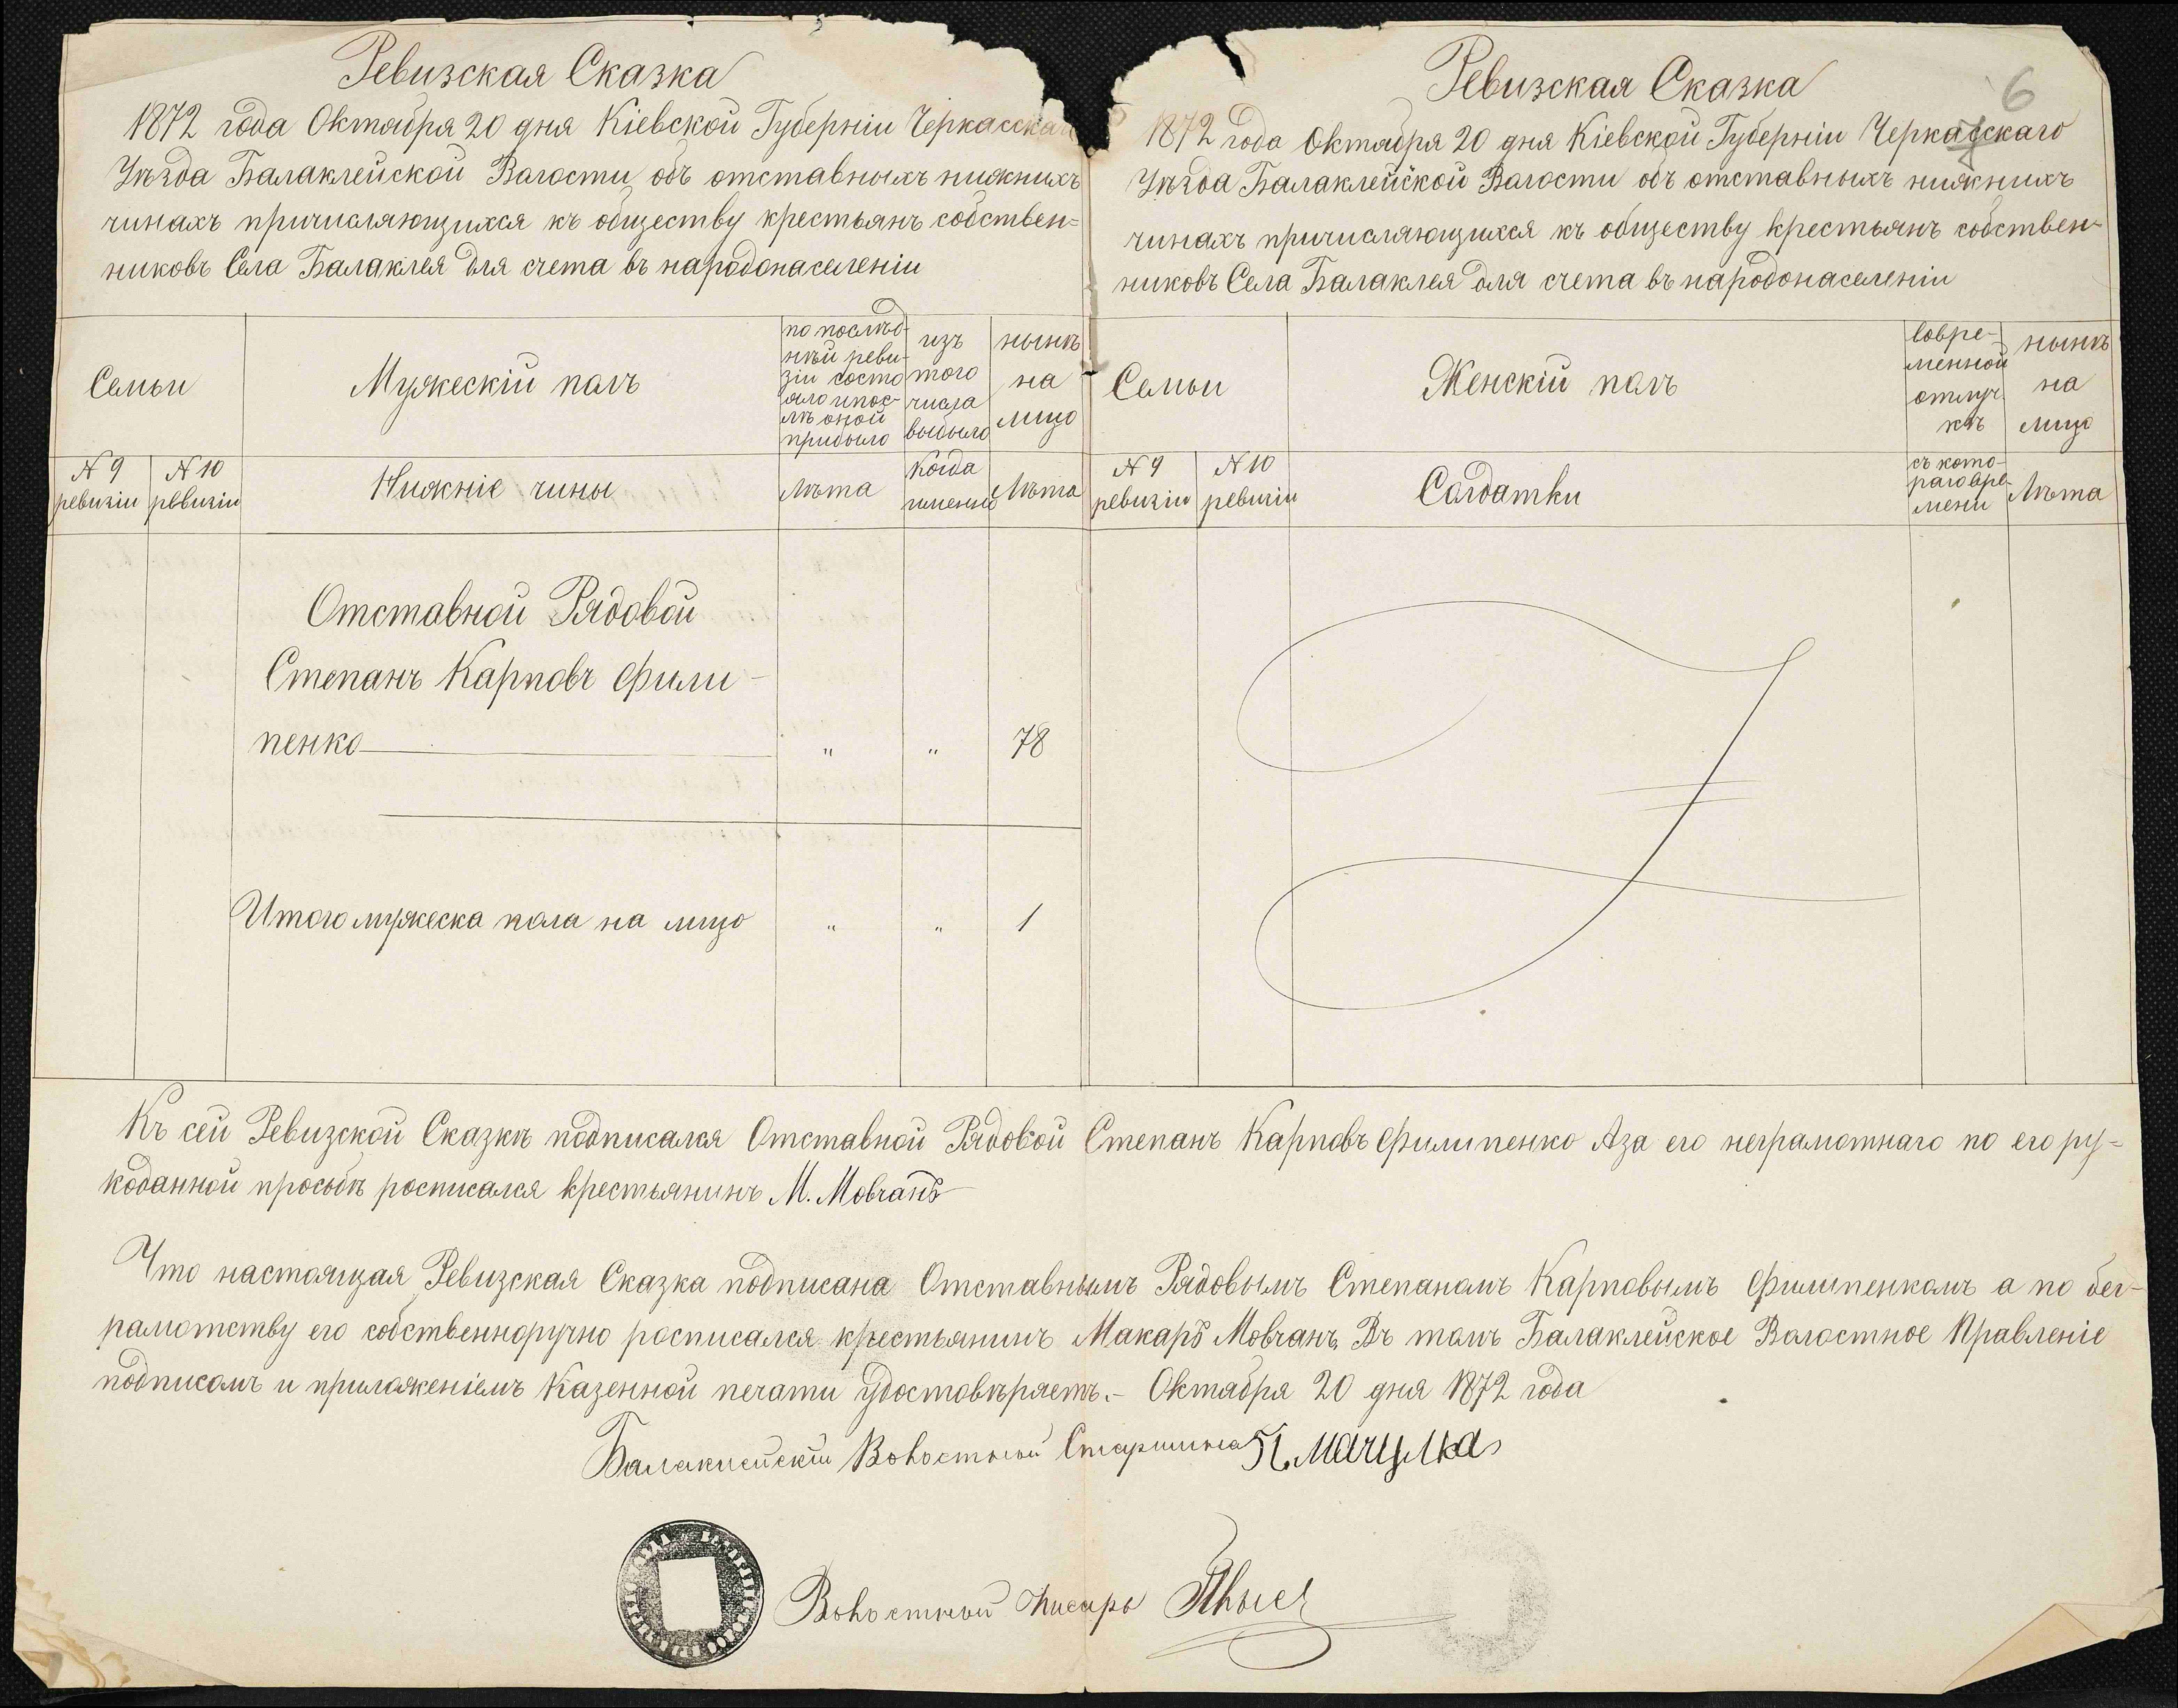 Ревизская Сказка
1872 года Октября 20 дня Кіевской Губерніи Черкасска
Уѣзда Балаклейской Волости объ отставныхъ нижнихъ
чинахъ причисляющихся къ обществу крестьянъ собствен=
никовъ Села Балаклея для счета въ народонаселеніи
Семьи
Мужескій полъ
по послѣд-
нѣй реви-
зіи состо
яло и пос-
лѣ оной
прибыло
изъ
того
числа
выбыло
нынѣ
на
лицо
N 9
ревизіи
N 10
ревизіи
Нижніе чины
Лѣта
Когда
именно
Лѣта
Отставной Рядовой
Степанъ Карповъ Фили-
пенко
"
"
78
Итого мужеска пола на лицо
"
"
1
6
Ревизская Сказка
1872 года Октября 20 дня Кіевской Губерніи Черкасскаго
Уѣзда Балаклейской Волости объ отставныхъ нижнихъ
чинахъ причисляющихся къ обществу крестьянъ собствен-
никовъ Села Балаклея для счета въ народонаселеніи
Семьи
Женскій полъ
Вовре-
менной
отлуч
кѣ
нынѣ
на
лицо
N 9
ревизіи
N 10
ревизіи
Солдатки
съ кото-
раго вре-
мени
Лѣта
Къ сей Ревизской Сказкѣ подписался Отставной Рядовой Степанъ Карповъ Филипенко А за его неграмотнаго по его ру=
коданной просьбѣ росписался крестьянинъ М. Мовчанъ
Что настоящая Ревизская Сказка подписана Отставнымъ Рядовымъ Степаномъ Карповымъ Филипенкомъ а по без-
рамотству его собственноручно росписался крестьянинъ Макаръ Мовчанъ. Въ томъ Балаклейское Волостное Правленіе
подписомъ и приложеніемъ Казенной печати удостовѣряетъ.- Октября 20 дня 1872 года
Балаклейскій Волостной Старшина
Волостной Писарь